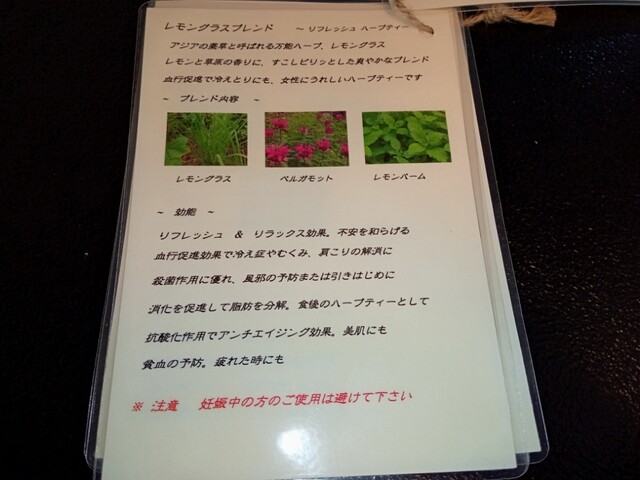 レモングラスブレンド ～ リフレッシュ ハーブティー
アジアの薬草と呼ばれる万能ハーブ、レモングラス
レモンと草原の香りに、すこしピリッとした爽やかなブレンド
血行促進で冷えとりにも、女性にうれしいハーブティーです
～ ブレンド内容 ～
レモングラス ベルガモット レモンバーム
～ 効能 ～
リフレッシュ & リラックス効果。不安を和らげる
血行促進効果で冷え症やむくみ、肩こりの解消に
殺菌作用に優れ、風邪の予防または引きはじめに
消化を促進して脂肪を分解。食後のハーブティーとして
抗酸化作用でアンチエイジング効果。美肌にも
貧血の予防。疲れた時にも
※ 注意 妊娠中の方のご使用は避けて下さい